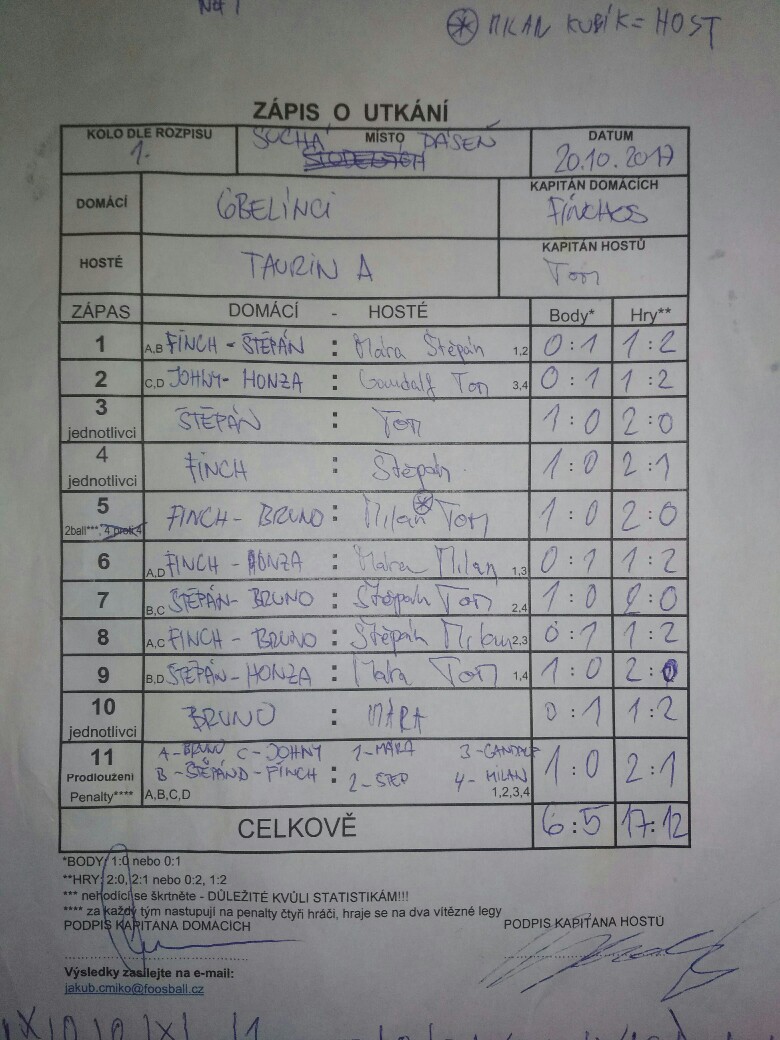 MILAN KUBÍK = HOST
ZÁPIS O UTKÁNÍ
KOLO DLE ROZPISU MÍSTO DATUM
1. SUCHÁ DÁSEŇ 20.10.2017
DOMÁCÍ GBELÍNCI KAPITÁN DOMÁCÍCH
FINCHOS
HOSTÉ TAURIN A KAPITÁN HOSTŮ
Tom
ZÁPAS DOMÁCÍ - HOSTÉ Body* Hry**
1 A,B FINCH - ŠTĚPÁN : Mára Štěpán 1,2 0:1 1:2
2 C,D JOHNY - HONZA : Gandalf Tom 3,4 0:1 1:2
3 jednotlivci ŠTĚPÁN : Tom 1:0 2:0
4 jednotlivci FINCH : Štěpán 1:0 2:1
5 2ball***, 4 proti 4 FINCH - BRUNO : Milan Tom 1:0 2:0
6 A,D FINCH - HONZA : Mára Milan 1,3 0:1 1:2
7 B,C ŠTĚPÁN - BRUNO : Štěpán Tom 2,4 1:0 2:0
8 A,C FINCH - BRUNO : Štěpán Milan 2,3 0:1 1:2
9 B,D ŠTĚPÁN - HONZA : Mára Tom 1,4 1:0 2:0
10 jednotlivci BRUNO : MÁRA 0:1 1:2
11 A - BRUNO C - JOHNY 1 - MÁRA 3 - GANDALF
Prodloužení B - ŠTĚPÁN D - FINCH : 2 - ŠTĚP 4 - MILAN 1:0 2:1
Penalty**** A,B,C,D 1,2,3,4
CELKOVĚ 6:5 17:12
*BODY: 1:0 nebo 0:1
**HRY: 2:0, 2:1 nebo 0:2, 1:2
*** nehodící se škrtněte - DŮLEŽITÉ KVŮLI STATISTIKÁM!!!
**** za každý tým nastupují na penalty čtyři hráči, hraje se na dva vítězné legy
PODPIS KAPITÁNA DOMÁCÍCH PODPIS KAPITÁNA HOSTŮ
Výsledky zasílejte na e-mail:
jakub.cmiko@foosball.cz